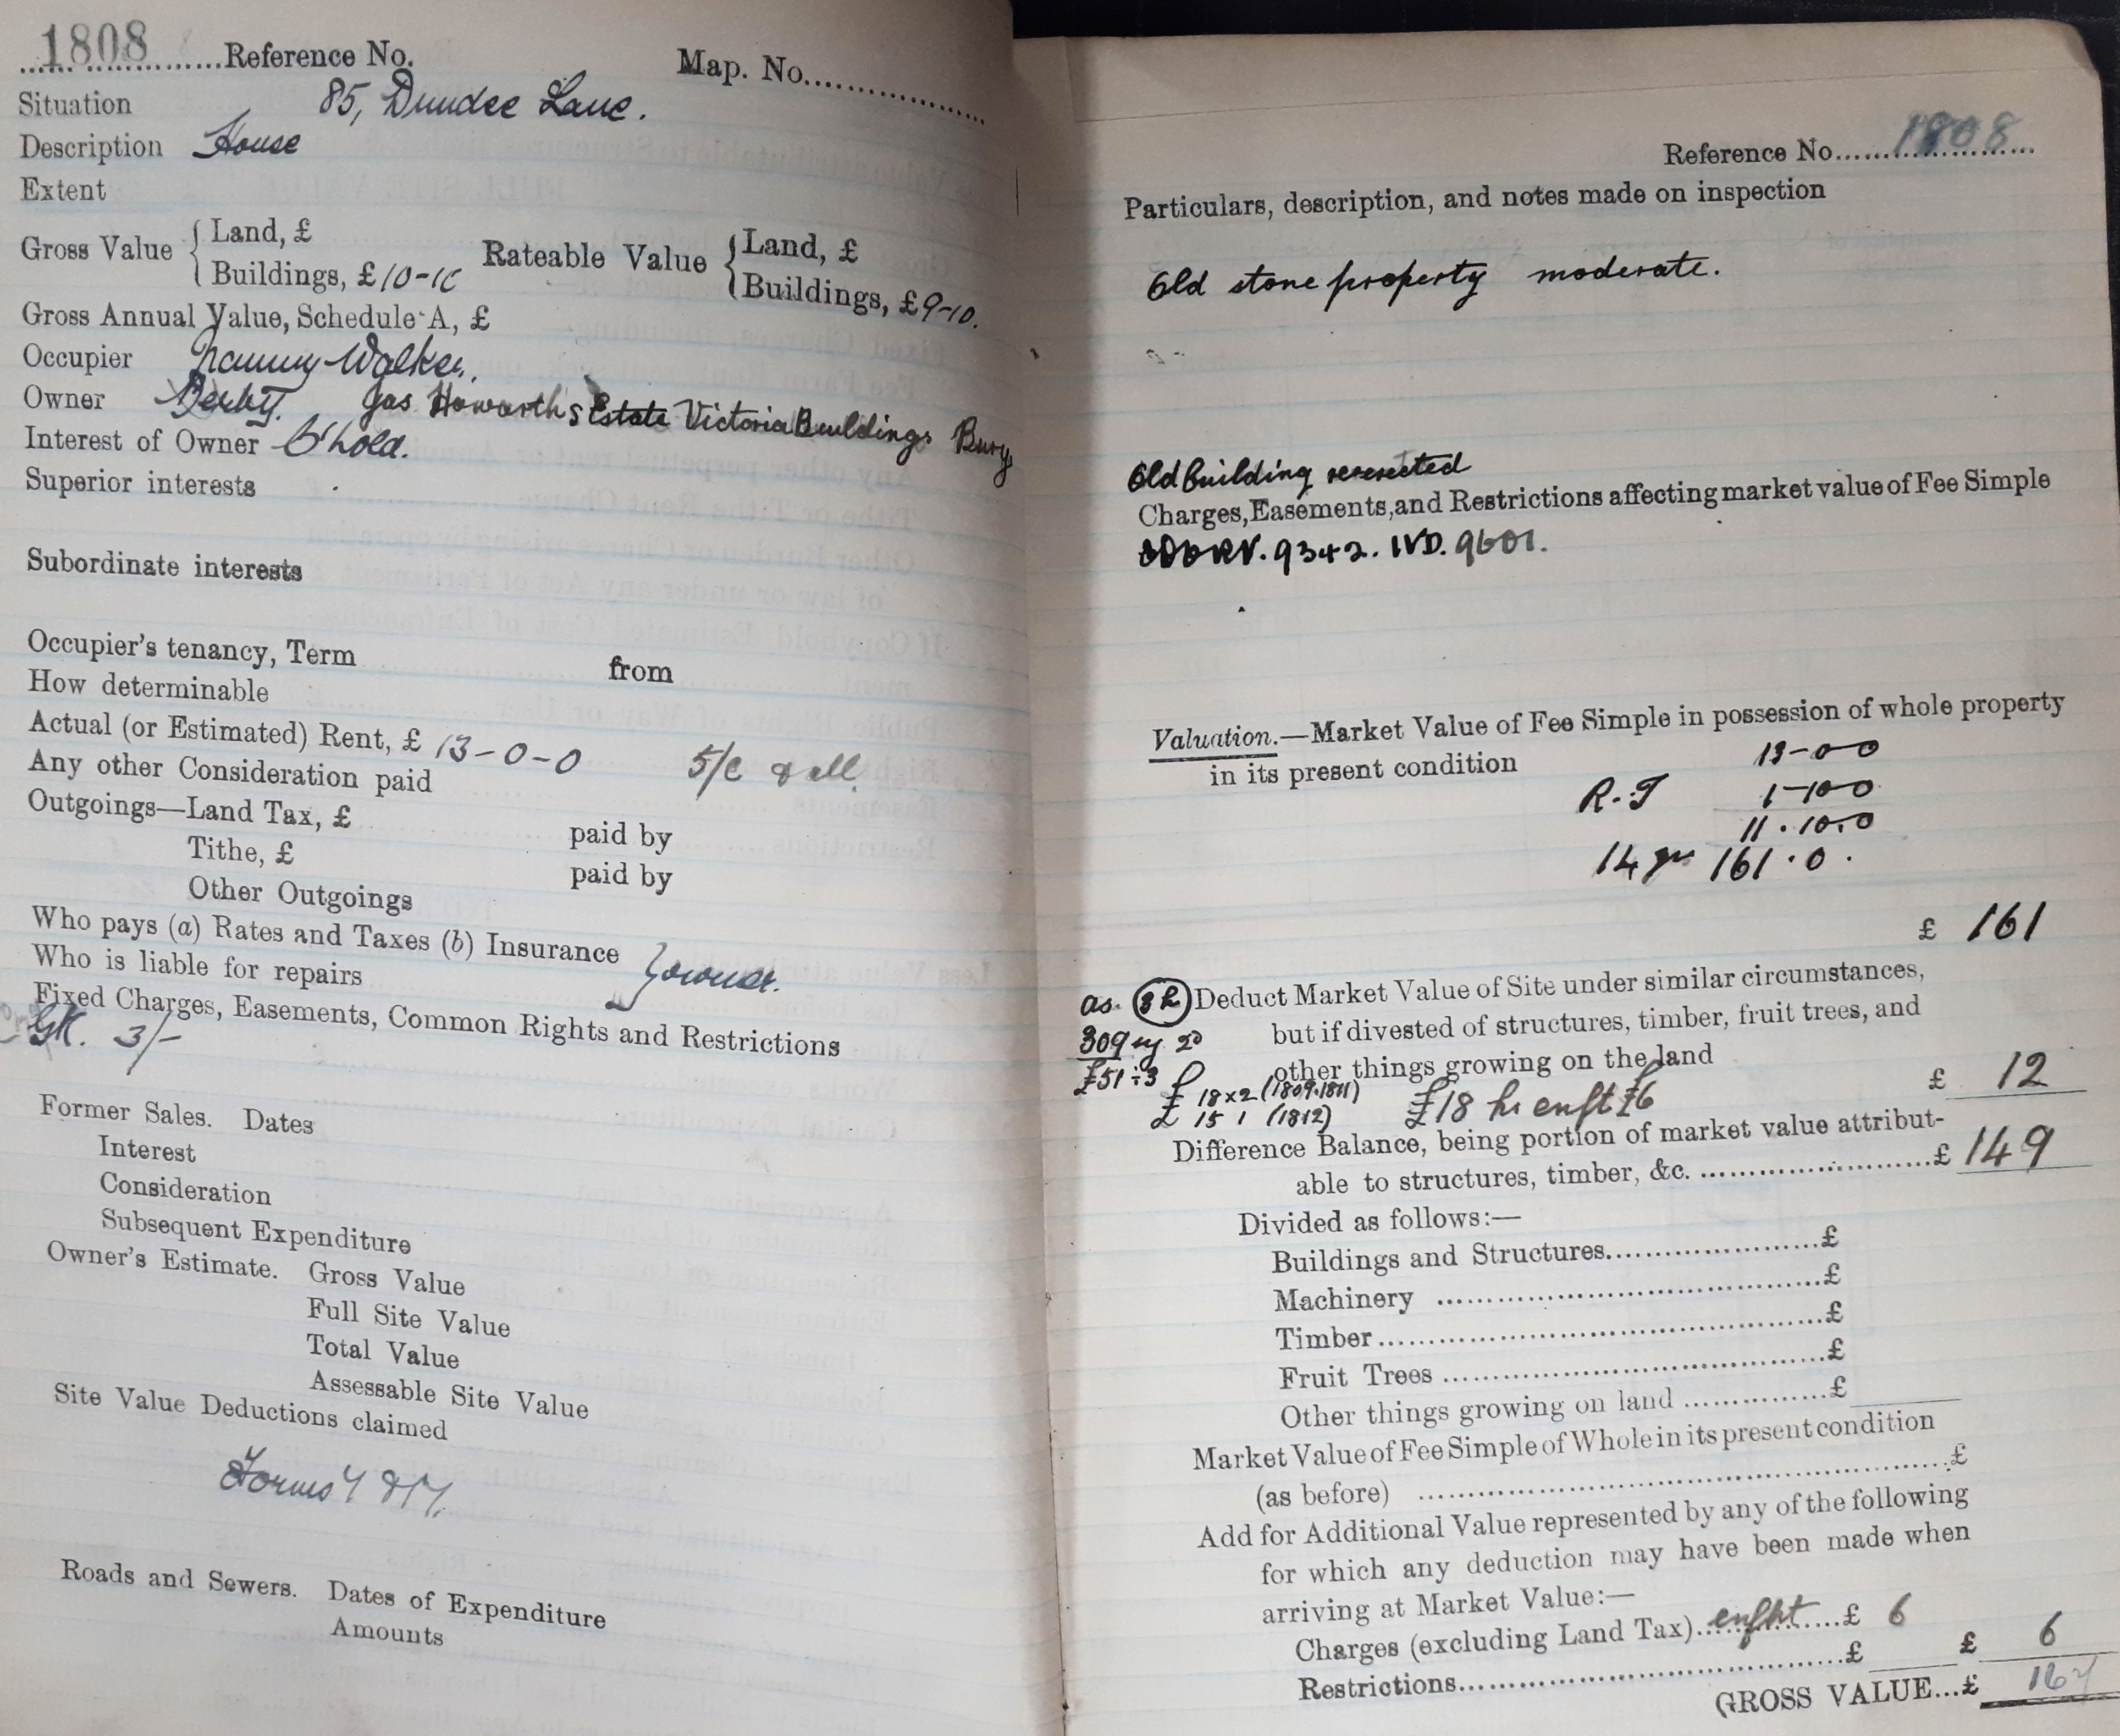 1808 Reference No. Map. No.
Situation 85, Dundee Lane.
Description House
Extent
Gross Value { Land, £ Rateable Value { Land, £
Buildings, £10-10 Buildings, £9-10.
Gross Annual Value, Schedule A, £
Occupier Walker.
Owner Derby. Jas Howarths Estate Victoria Buildings Bury
Interest of Owner C'hold.
Superior interests
Subordinate interests
Occupier's tenancy, Term from
How determinable
Actual (or Estimated) Rent, £ 13-0-0
Any other Consideration paid
Outgoings—Land Tax, £ paid by
Tithe, £ paid by
Other Outgoings
Who pays (a) Rates and Taxes (b) Insurance
Who is liable for repairs } owner.
Fixed Charges, Easements, Common Rights and Restrictions
3/-
Former Sales. Dates
Interest
Consideration
Subsequent Expenditure
Owner's Estimate. Gross Value
Full Site Value
Total Value
Assessable Site Value
Site Value Deductions claimed
Forms
Roads and Sewers. Dates of Expenditure
Amounts
Reference No. 1808
Particulars, description, and notes made on inspection
Old stone property moderate.
Old building
Charges, Easements, and Restrictions affecting market value of Fee Simple
9342. IVD. 9601.
Valuation.—Market Value of Fee Simple in possession of whole property
in its present condition 13-0-0
R.T 1-10-0
11.10.0
14 yrs 161.0.
£ 161
as. Deduct Market Value of Site under similar circumstances,
309 but if divested of structures, timber, fruit trees, and
£51÷3 other things growing on the land £ 12
£ 18x2 (1809.1811) £18 £6
£ 15 1 (1812)
Difference Balance, being portion of market value attribut-
able to structures, timber, &c. £ 149
Divided as follows:—
Buildings and Structures £
Machinery £
Timber £
Fruit Trees £
Other things growing on land £
Market Value of Fee Simple of Whole in its present condition
(as before) £
Add for Additional Value represented by any of the following
for which any deduction may have been made when
arriving at Market Value:—
Charges (excluding Land Tax) enfht £ 6
Restrictions £ £ 6
GROSS VALUE...£ 167